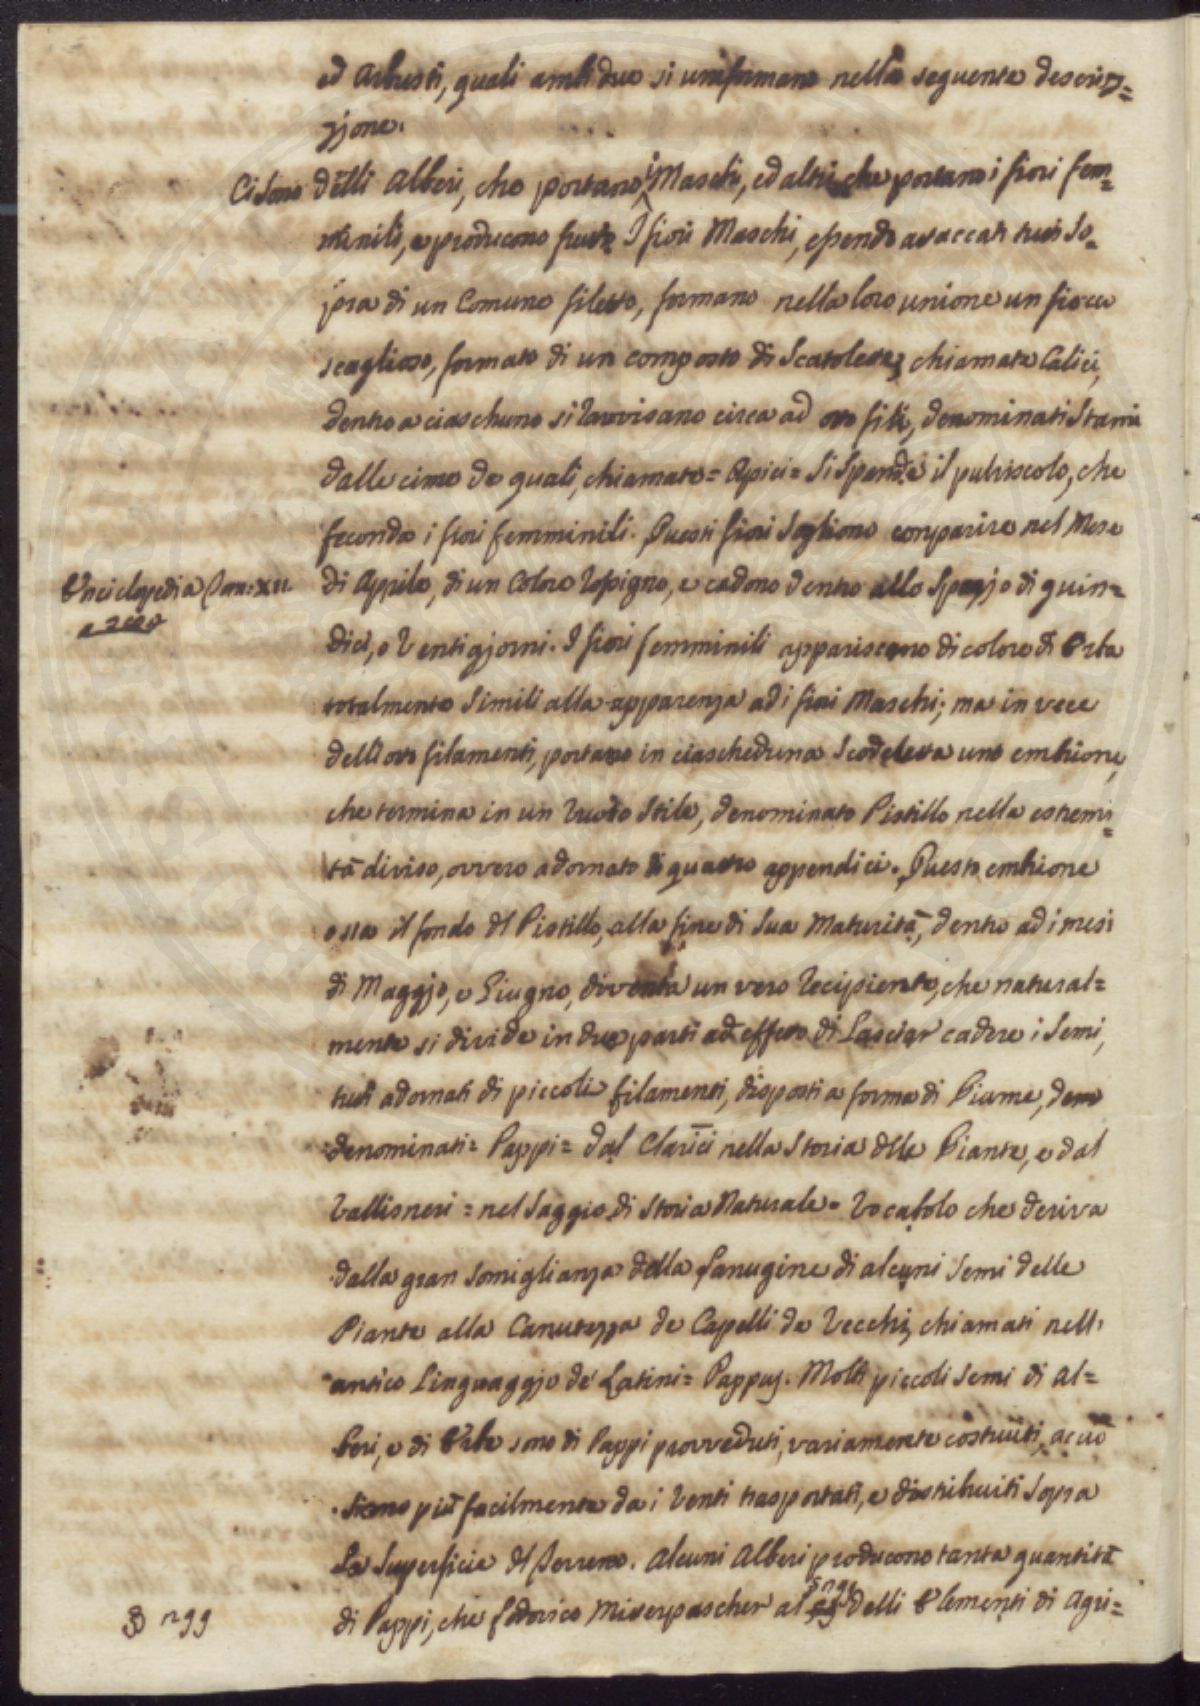 ed Arbusti, quali ambi due si uniformano nella seguente descriz=
zjone.
Ci sono delli Alberi, che portano i Maschi, ed altri che portano i fiori fem=
minili, e producono frutti. I fiori Maschi, essendo attaccati tutti so=
pra di un Comune filetto, formano nella loro unione un fiocco
scaglioso, formato di un composto di Scatolette, chiamate Calici,
dentro a ciaschuno si ravvisano circa ad otto fili, denominati Stami
dalle cime de quali, chiamate = Apici = si spande il pulviscolo, che
feconda i fiori femminili. Questi fiori sogliono comparire nel Mese
di Aprile, di un Colore rossigno, e cadono dentro allo Spazjo di quin=
Enciclopedia Tom: XII.
dici, o Venti gjorni. I fiori femminili appariscono di colore di Erba
totalmente Simili alla apparenza ad i fiori Maschi; ma in vece
delli otto filamenti, portano in ciascheduna Scodeletta uno embrione,
che termina in un Vuoto Stile, denominato Pistillo nella estremi=
tà diviso, ovvero adornato di quattro appendici. Questo embrione
o sia il fondo del Pistillo, alla fine di Sua Maturità, dentro ad i mesi
di Maggjo, e Giugno, diventa un vero recipiente, che natural=
mente si divide in due parti ad effetto di Lasciar cadere i Semi,
tutti adornati di piccoli filamenti, disposti a forma di Piume, deno
denominati = Pappi = dal Clarici nella Storia delle Piante, e dal
Vallisneri = nel Saggio di Storia Naturale = Vocabolo che deriva
dalla gran Somiglianza della Lanugine di alcuni Semi delle
Piante alla Canutezza de Capelli de Vecchi, chiamati nell'
antico Linguaggjo de' Latini = Pappus. Molti piccoli Semi di Al=
beri, e di Erbe sono di Pappi provveduti, variamente costruiti, acciò
Siano più facilmente da i Venti trasportati, e distribuiti Sopra
La Superficie del Terreno. Alcuni Alberi producono tanta quantità
di Pappi, che Federico al § delli Elementi di Agri=
§ 299